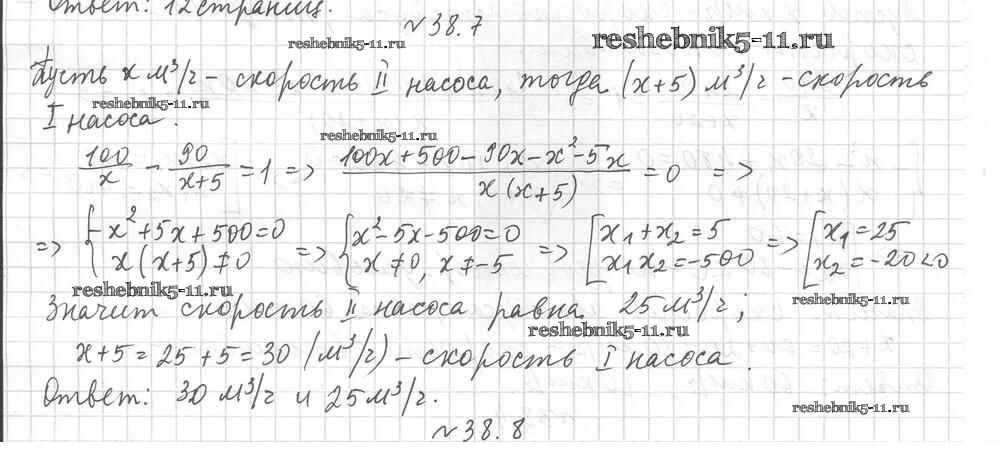 Ответ: 12 страниц.
№ 38.7
reshebnik5-11.ru reshebnik5-11.ru
Пусть x м³/г – скорость II насоса, тогда (x+5) м³/г – скорость
reshebnik5-11.ru
I насоса.
reshebnik5-11.ru
100/x - 90/(x+5) = 1 => (100x+500-90x-x²-5x)/(x(x+5)) = 0 =>
=> { -x²+5x+500=0; x(x+5)≠0 => { x²-5x-500=0; x≠0, x≠-5 => [ x₁+x₂=5; x₁x₂=-500 => [ x₁=25; x₂=-20<0
reshebnik5-11.ru reshebnik5-11.ru
Значит скорость II насоса равна 25 м³/г;
reshebnik5-11.ru
x+5=25+5=30 (м³/г) – скорость I насоса.
Ответ: 30 м³/г и 25 м³/г.
reshebnik5-11.ru
№ 38.8